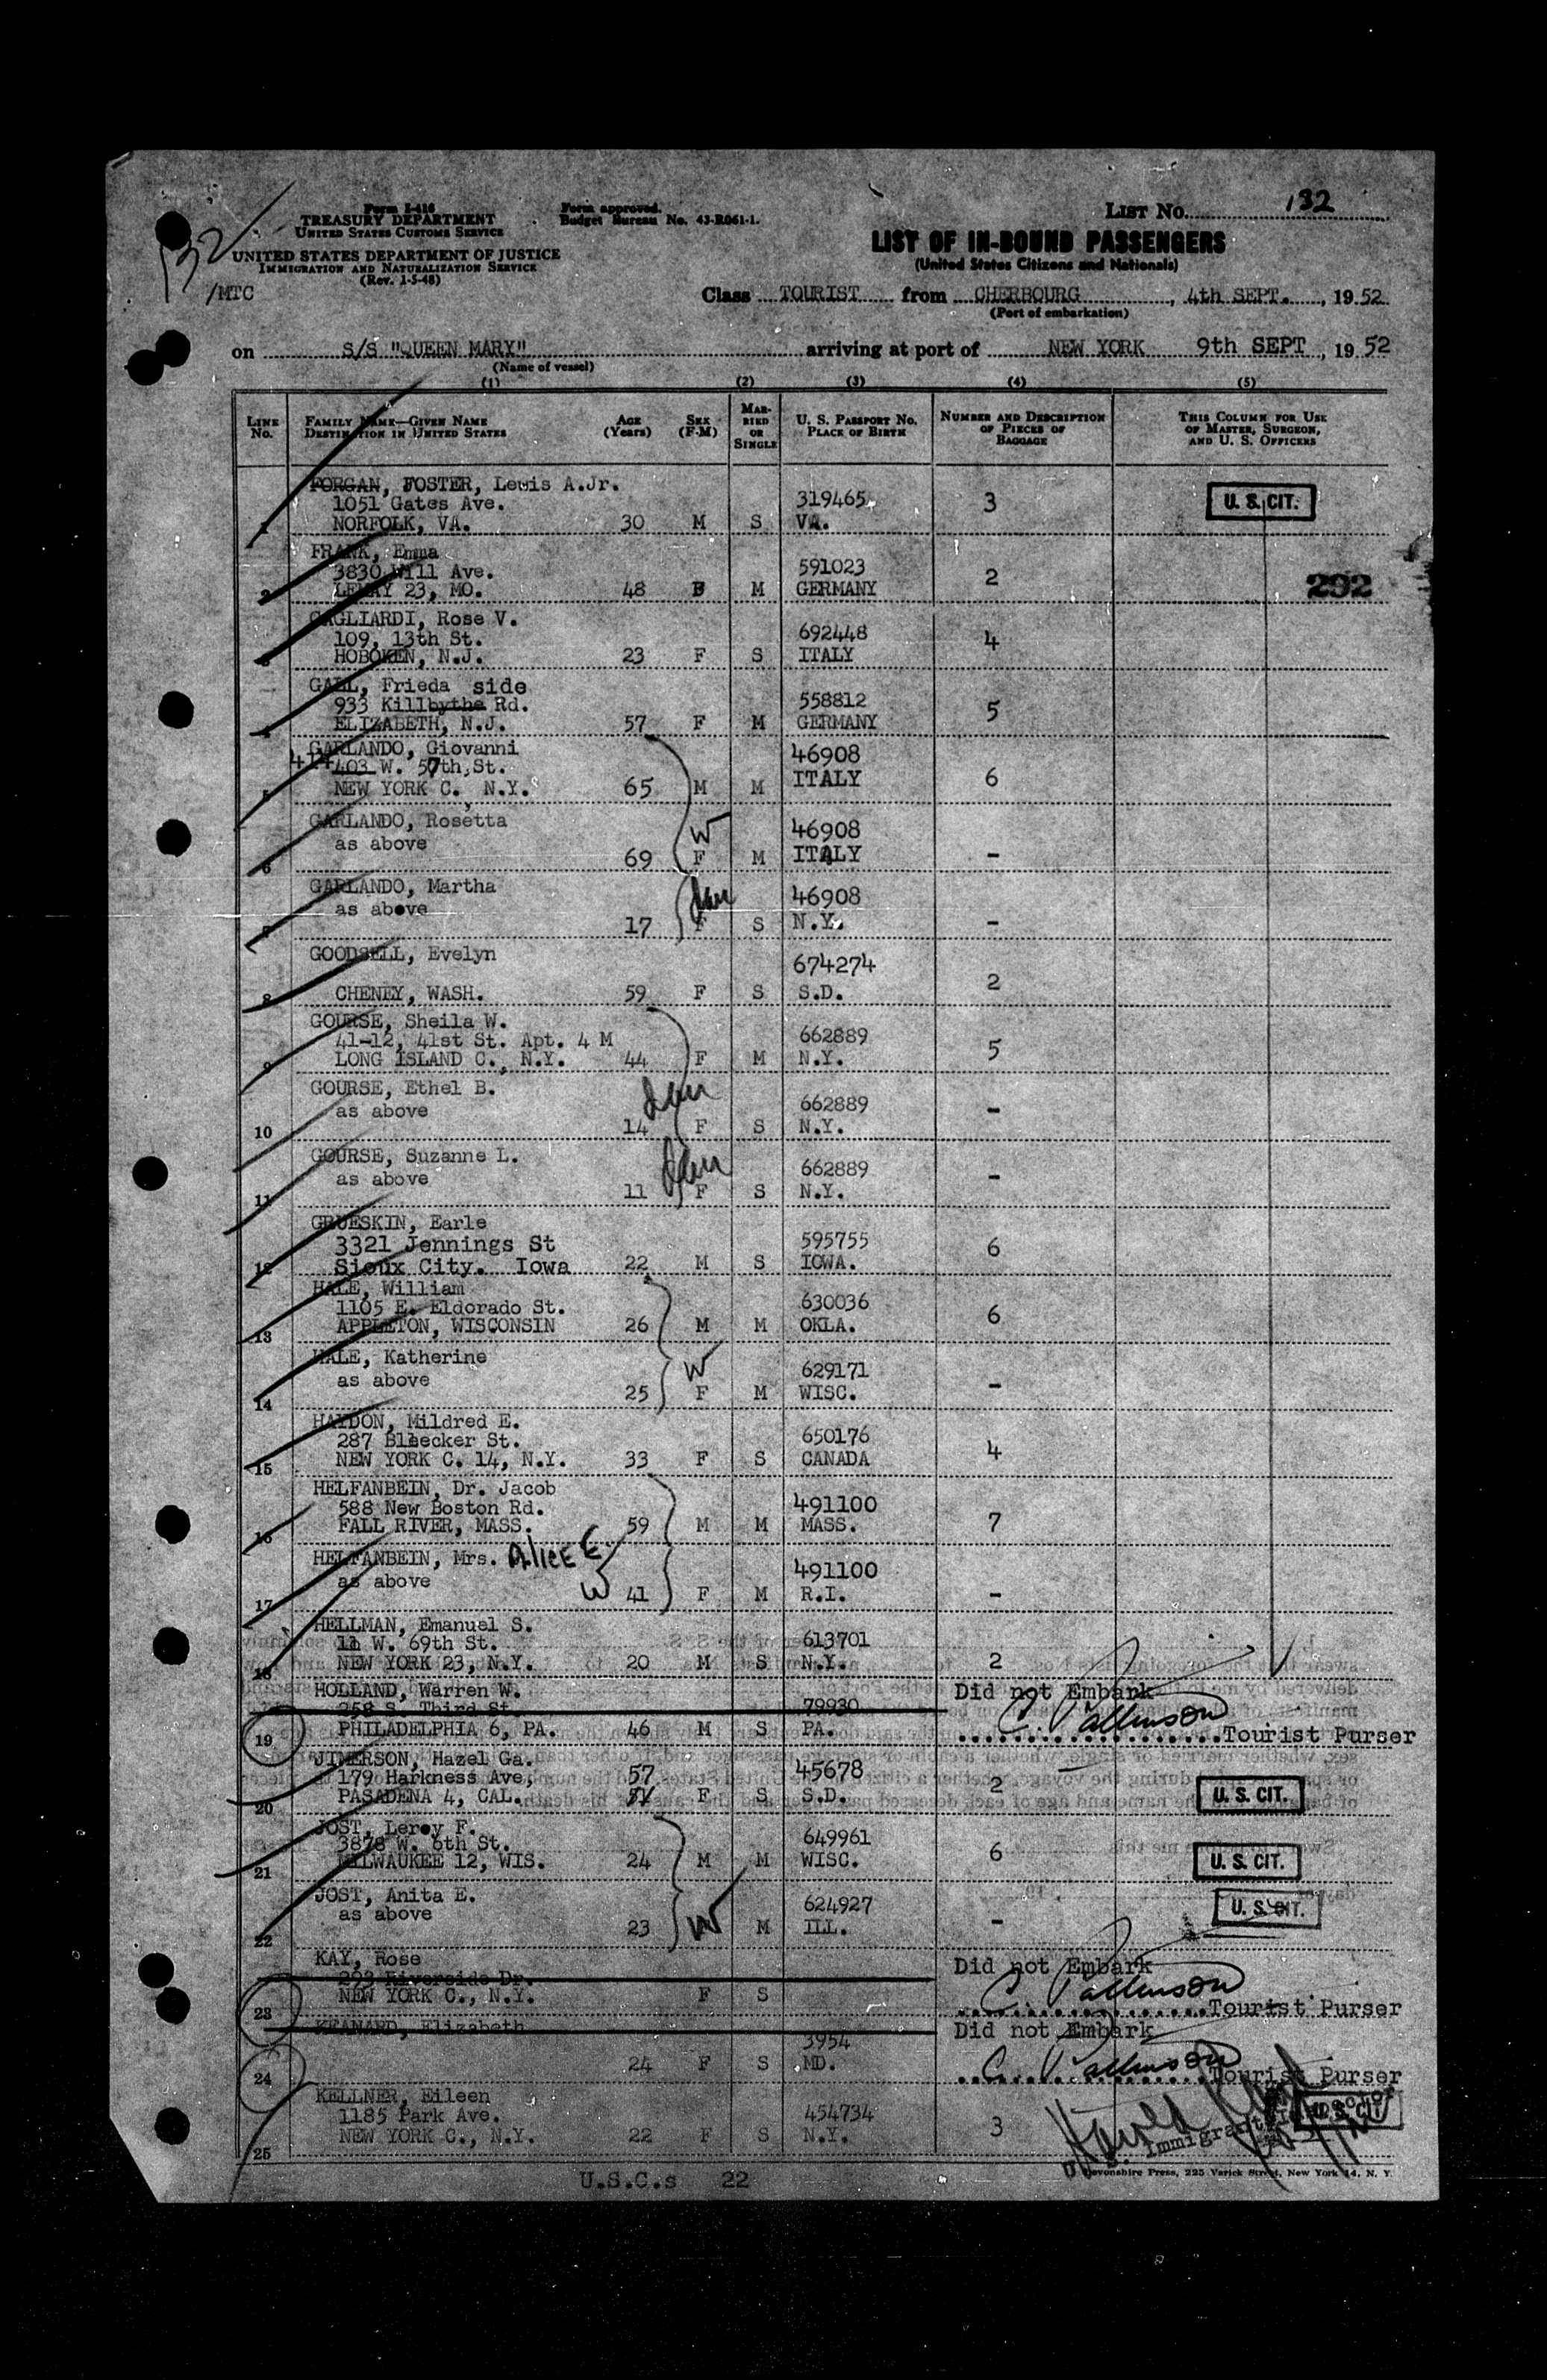 132
Form I-416
TREASURY DEPARTMENT
UNITED STATES CUSTOMS SERVICE
UNITED STATES DEPARTMENT OF JUSTICE
IMMIGRATION AND NATURALIZATION SERVICE
(Rev. 1-5-48)
/MTC
Form approved.
Budget Bureau No. 43-R061-1.
LIST No. 132
LIST OF IN-BOUND PASSENGERS
(United States Citizens and Nationals)
Class TOURIST from CHERBOURG, 4th SEPT., 1952
(Port of embarkation)
on S/S "QUEEN MARY" arriving at port of NEW YORK 9th SEPT, 1952
(Name of vessel)
(1) (2) (3) (4) (5)
LINE No.
FAMILY NAME—GIVEN NAME
DESTINATION IN UNITED STATES
AGE (Years)
SEX (F-M)
MARRIED OR SINGLE
U. S. PASSPORT No.
PLACE OF BIRTH
NUMBER AND DESCRIPTION OF PIECES OF BAGGAGE
THIS COLUMN FOR USE OF MASTER, SURGEON, AND U. S. OFFICERS
FORGAN, FOSTER, Lewis A.Jr.
1051 Gates Ave. 319465 3 U. S. CIT.
1 NORFOLK, VA. 30 M S VA.
FRANK, Emma
3830 Will Ave. 591023 2 292
2 LEMAY 23, MO. 48 F M GERMANY
GAGLIARDI, Rose V.
109, 13th St. 692448 4
3 HOBOKEN, N.J. 23 F S ITALY
GALL, Frieda side
933 Killbythe Rd. 558812 5
4 ELIZABETH, N.J. 57 F M GERMANY
GARLANDO, Giovanni 46908
414 403 W. 57th,St. ITALY 6
5 NEW YORK C., N.Y. 65 M M
GARLANDO, Rosetta 46908
as above W
6 69 F M ITALY -
GARLANDO, Martha 46908
as above
7 17 F S N.Y. -
GOODSELL, Evelyn 674274 2
8 CHENEY, WASH. 59 F S S.D.
GOURSE, Sheila W.
41-12, 41st St. Apt. 4 M 662889 5
9 LONG ISLAND C., N.Y. 44 F M N.Y.
GOURSE, Ethel B.
as above 662889 -
10 14 F S N.Y.
GOURSE, Suzanne L.
as above 662889 -
11 11 F S N.Y.
GRUESKIN, Earle
3321 Jennings St 595755 6
12 Sioux City. Iowa 22 M S IOWA.
HALE, William
1105 E. Eldorado St. 630036 6
13 APPLETON, WISCONSIN 26 M M OKLA.
HALE, Katherine
as above W 629171 -
14 25 F M WISC.
HAYDON, Mildred E.
287 Bleecker St. 650176 4
15 NEW YORK C. 14, N.Y. 33 F S CANADA
HELFANBEIN, Dr. Jacob
588 New Boston Rd. 491100 7
16 FALL RIVER, MASS. 59 M M MASS.
HELFANBEIN, Mrs. Alice E
as above 491100 -
17 W 41 F M R.I.
HELLMAN, Emanuel S.
11 W. 69th St. 613701 2
18 NEW YORK 23, N.Y. 20 M S N.Y.
HOLLAND, Warren W. Did not Embark
258 S. Third St. 79930
19 PHILADELPHIA 6, PA. 46 M S PA. Tourist Purser
JIMERSON, Hazel Ga.
179 Harkness Ave, 57 45678 2 U. S. CIT.
20 PASADENA 4, CAL. F S S.D.
JOST, Leroy F.
3878 W. 6th St. 649961 6 U. S. CIT.
21 MILWAUKEE 12, WIS. 24 M M WISC.
JOST, Anita E.
as above 624927 - U. S. CIT.
22 23 W M ILL.
KAY, Rose Did not Embark
293 Riverside Dr.
23 NEW YORK C., N.Y. F S Tourist Purser
KEANARD, Elizabeth Did not Embark
3954
24 24 F S MD. Tourist Purser
KELLNER, Eileen
1185 Park Ave. 454734 3 U. S. CIT.
25 NEW YORK C., N.Y. 22 F S N.Y.
U.S.C.s 22
Devonshire Press, 225 Varick Street, New York 14, N. Y.